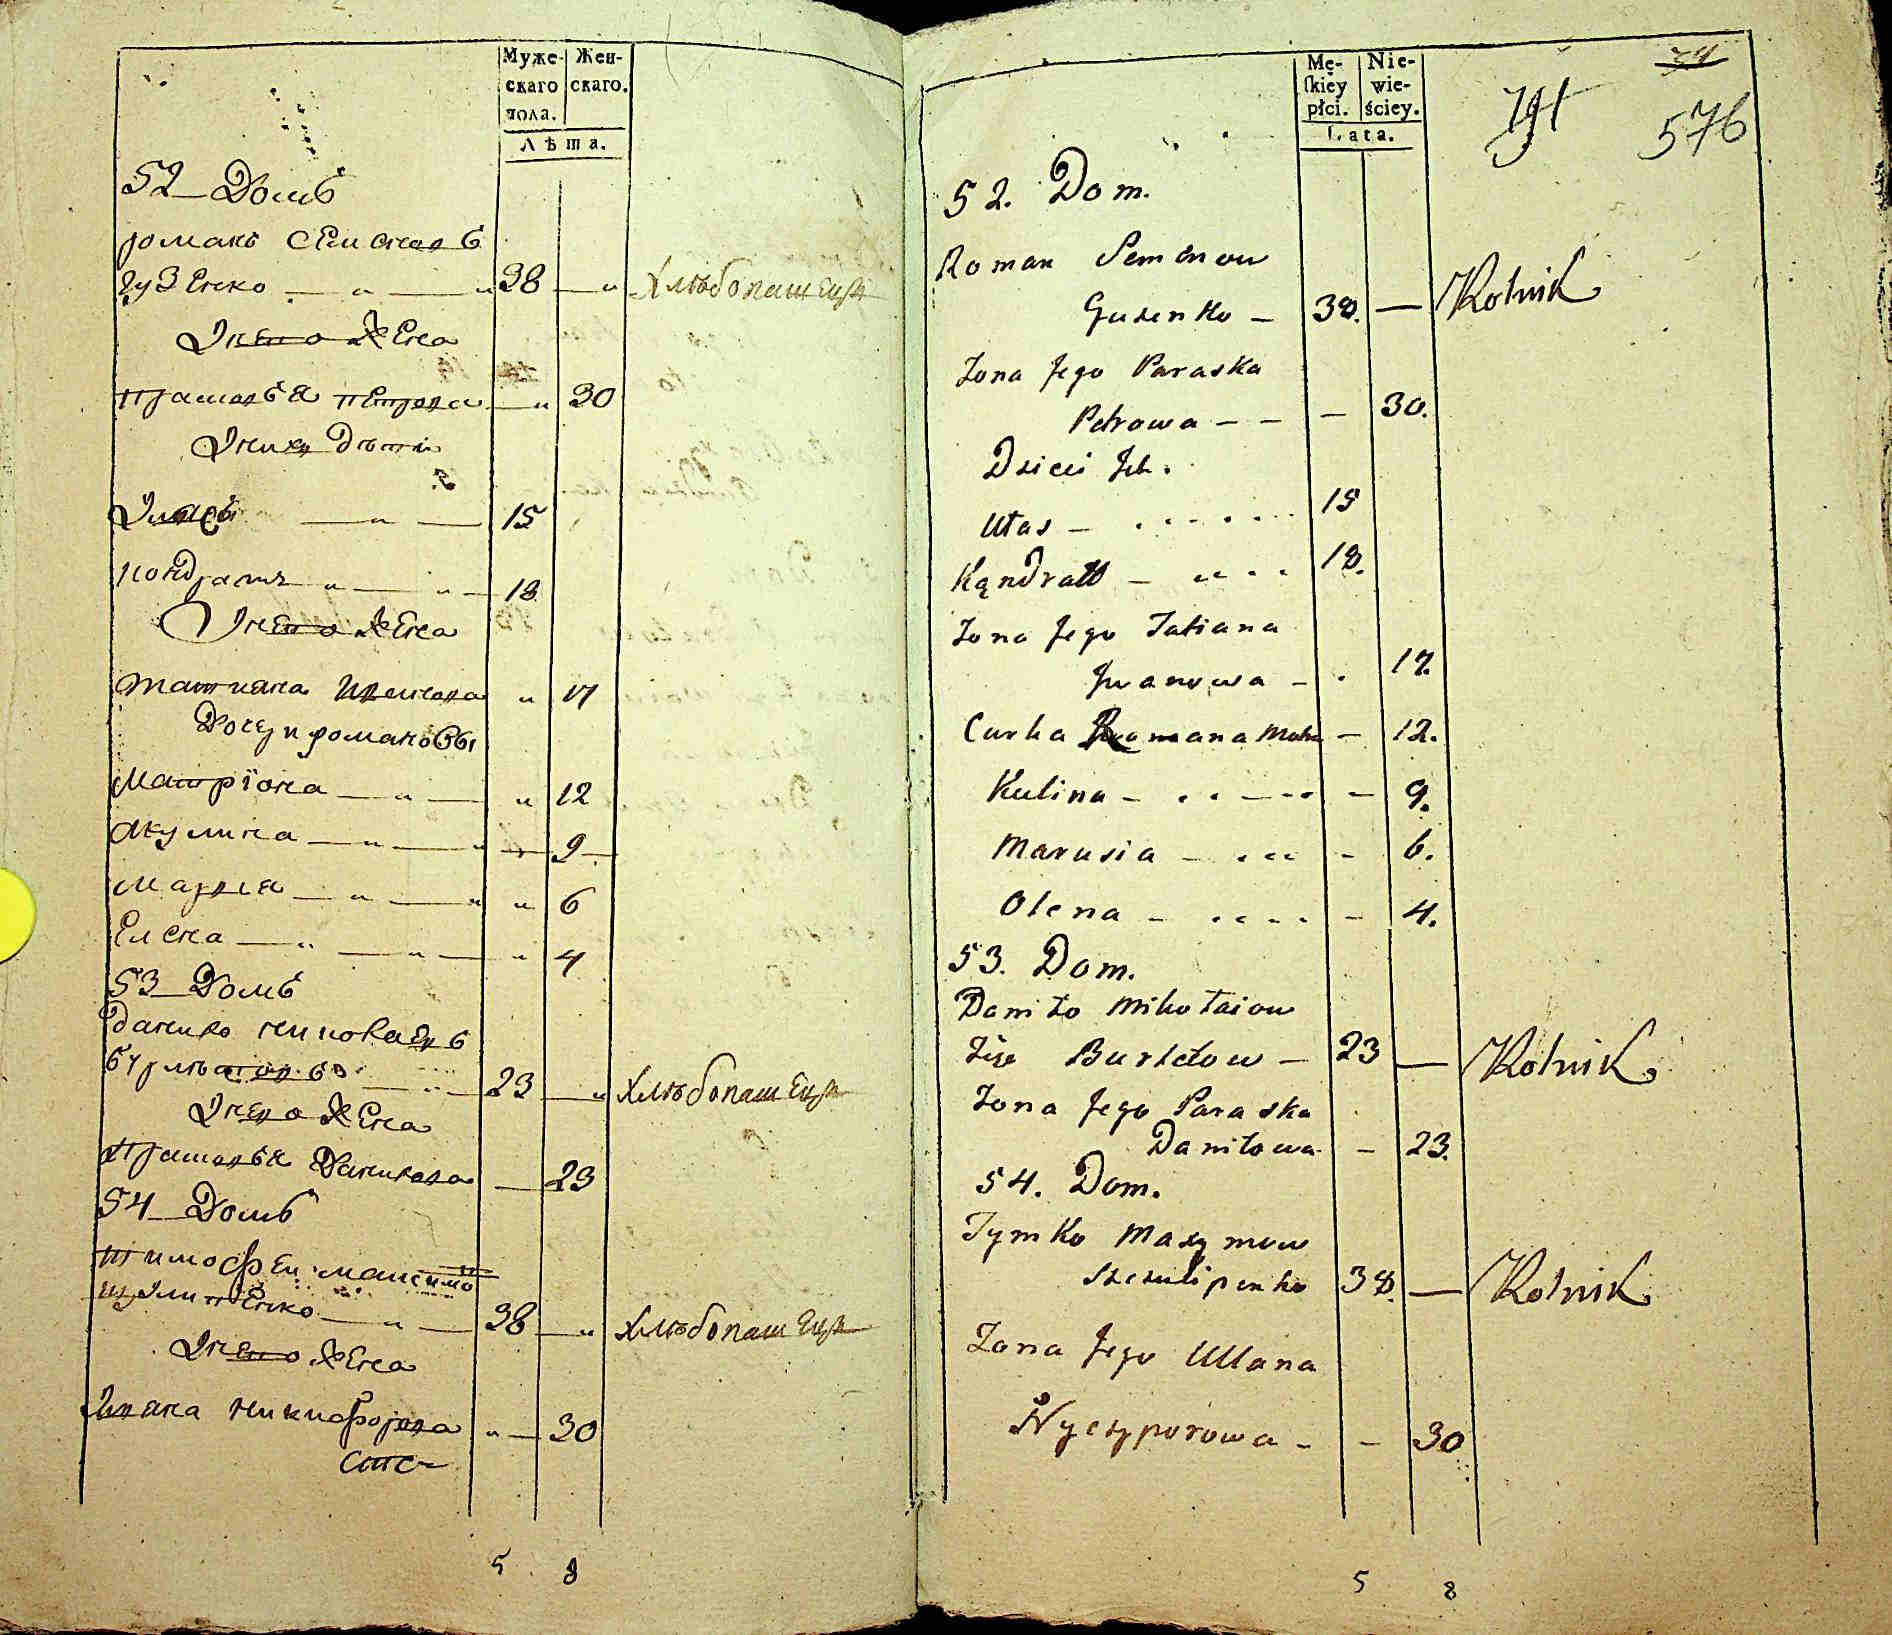 Муже-
скаго
пола.
Жен-
скаго.
Лѣта.
52 Домъ
романъ Семеновъ
гузенко — „ — „ 38 — „ Хлѣбопашецъ
У него Жена
праскѣвя петрова — „ 30
У них дѣти
Уласъ — „ — 15
кондратъ „ — „ — 18
У него Жена
татияна Иванова „ 17
Дочери романовы
Матріона — „ — „ 12
Акулина — „ — „ 9
Мария — „ — „ „ 6
Елена — „ — „ — „ 4
53 Домъ
данило николаевъ
— „ — 23 — „ Хлѣбопашецъ
У него Жена
праскѣвя Данилова — 23
54 Домъ
тимофеи максимо
— „ — 38 — „ Хлѣбопашецъ
У него Жена
никифорова „ — 30
5 8
Mę-
ſkiéy
płci.
Nie-
wie-
ściey.
Lata.
74
576
52. Dom.
Roman Semenow
Guzenko — 38. — Rolnik
Żona Jego Paraska
Petrowa — — — 30.
Dzieci Ich.
Ułas — 15
Kąndratt — 18.
Żona Jego Tatiana
Jwanowa — . 17.
Curka Romana Motr — 12.
Kulina — — 9.
Marusia — — 6.
Olena — — 4.
53. Dom.
Daniło Mikołaiow
Burlełow — 23 — Rolnik
Żona Jego Paraska
Daniłowa — 23.
54. Dom.
Tymko Maxymow
38. — Rolnik
Żona Jego Ullana
Nyczyporowa — — 30
5 8